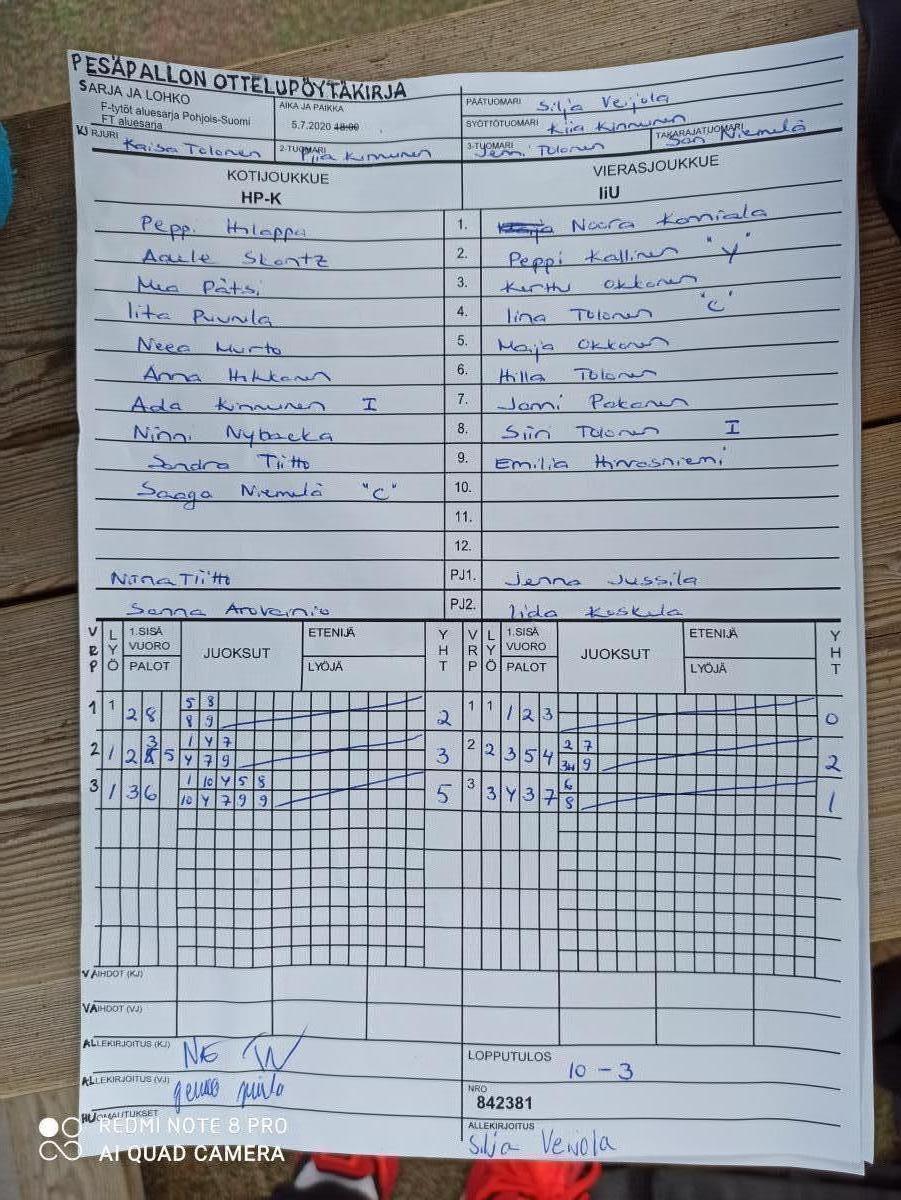 PESÄPALLON OTTELUPÖYTÄKIRJA
SARJA JA LOHKO
F-tytöt aluesarja Pohjois-Suomi
FT aluesarja
AIKA JA PAIKKA
5.7.2020 18:00
PÄÄTUOMARI Silja Veijola
SYÖTTÖTUOMARI Kiia Kinnunen
KIRJURI Kaisa Tolonen
2-TUOMARI Piia Kinnunen
3-TUOMARI Jenni Tolonen
TAKARAJATUOMARI Sari Niemelä
KOTIJOUKKUE
HP-K
VIERASJOUKKUE
IiU
Peppi Hilappa 1. Noora Komiala
Adele Skantz 2. Peppi Kallinen "Y"
Mea Pätsi 3. Kerttu Okkonen
Iita Puurula 4. Iina Tolonen "C"
Neea Murto 5. Maija Okkonen
Anna Hikkanen 6. Hilla Tolonen
Ada Kinnunen I 7. Jonni Pakanen
Ninni Nybacka 8. Siiri Tolonen I
Sandra Tiitto 9. Emilia Hirvasniemi
Saaga Niemelä "C" 10.
11.
12.
Nina Tiitto PJ1. Jenna Jussila
Sanna Arovainio PJ2. Iida Koskela
VRP LYÖ 1.SISÄ VUORO PALOT JUOKSUT ETENIJÄ LYÖJÄ YHT VRP LYÖ 1.SISÄ VUORO PALOT JUOKSUT ETENIJÄ LYÖJÄ YHT
1 1 2 8 5 8 2 1 1 1 2 3 0
8 9
2 1 2 3 5 1 4 7 3 2 2 3 5 4 2 7 2
4 7 9 9
3 1 3 6 1 10 4 5 8 5 3 3 4 3 7 6 1
10 4 7 9 9 8
VAIHDOT (KJ)
VAIHDOT (VJ)
ALLEKIRJOITUS (KJ)
ALLEKIRJOITUS (VJ)
HUOMAUTUKSET
LOPPUTULOS
10 - 3
NRO
842381
ALLEKIRJOITUS
Silja Veijola
REDMI NOTE 8 PRO
AI QUAD CAMERA